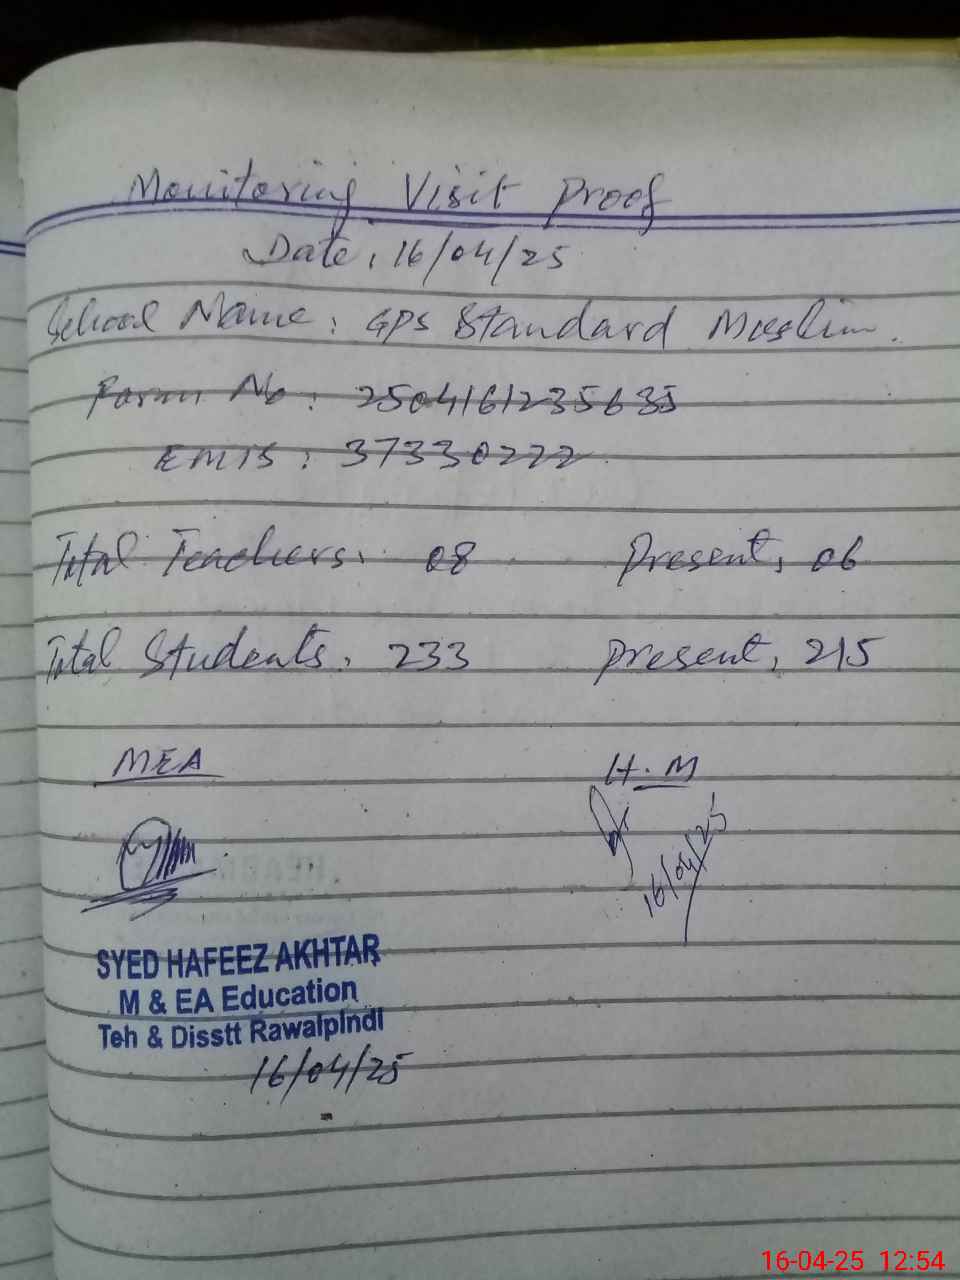 Monitoring Visit Proof
Date: 16/04/25
School Name: GPS Standard Muslim.
Form No: 2504161235635
EMIS: 37330222
Total Teachers: 08 Present: 06
Total Students: 233 Present: 215
MEA H.M
16/04/25
SYED HAFEEZ AKHTAR
M & EA Education
Teh & Disstt Rawalpindi
16/04/25
16-04-25 12:54